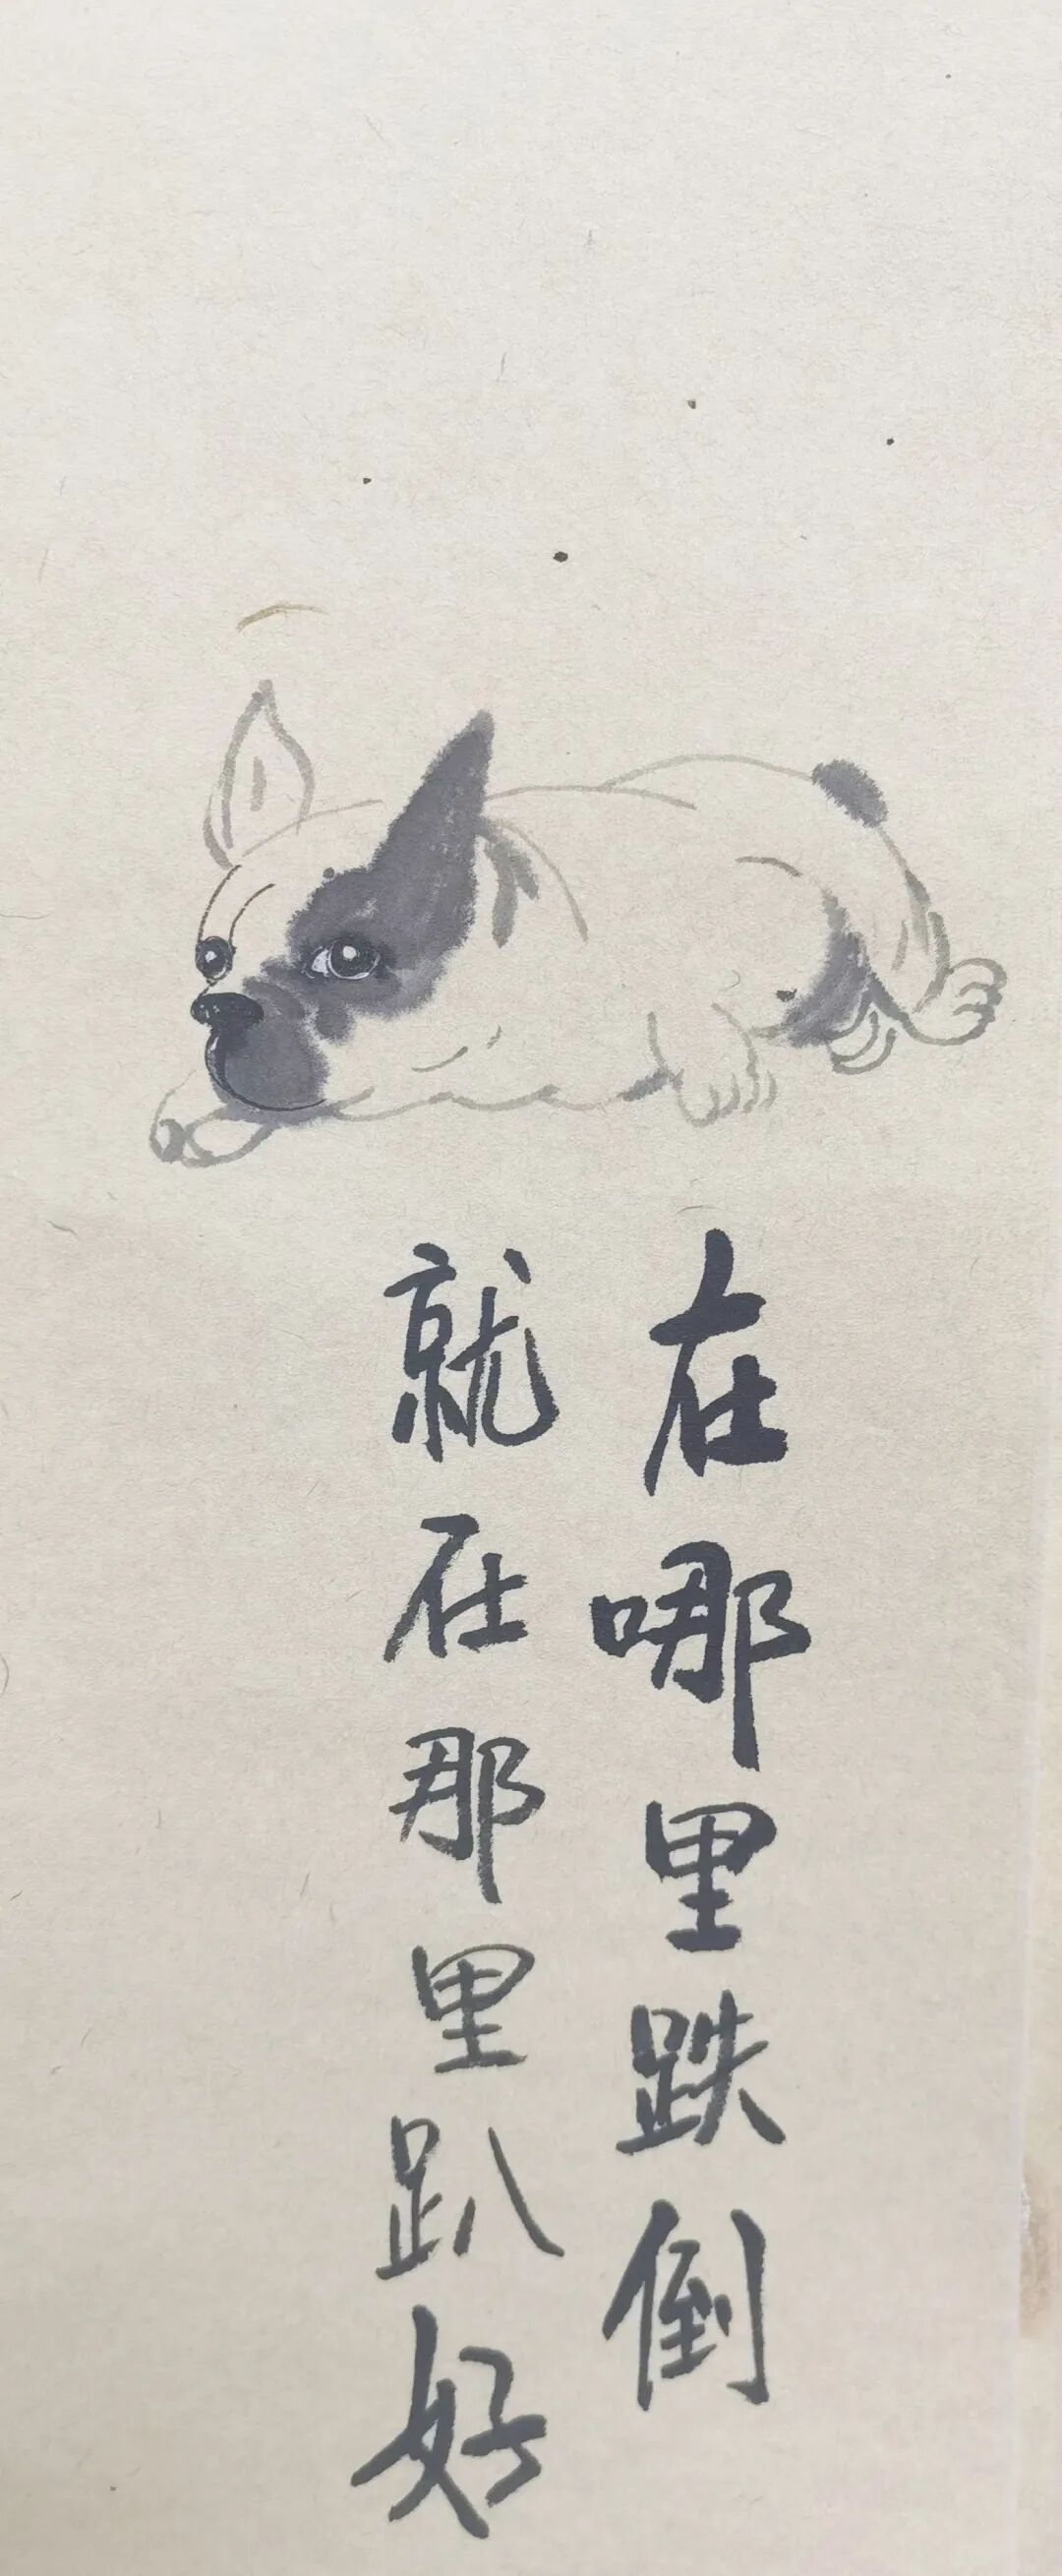 在哪里跌倒
就在那里趴好